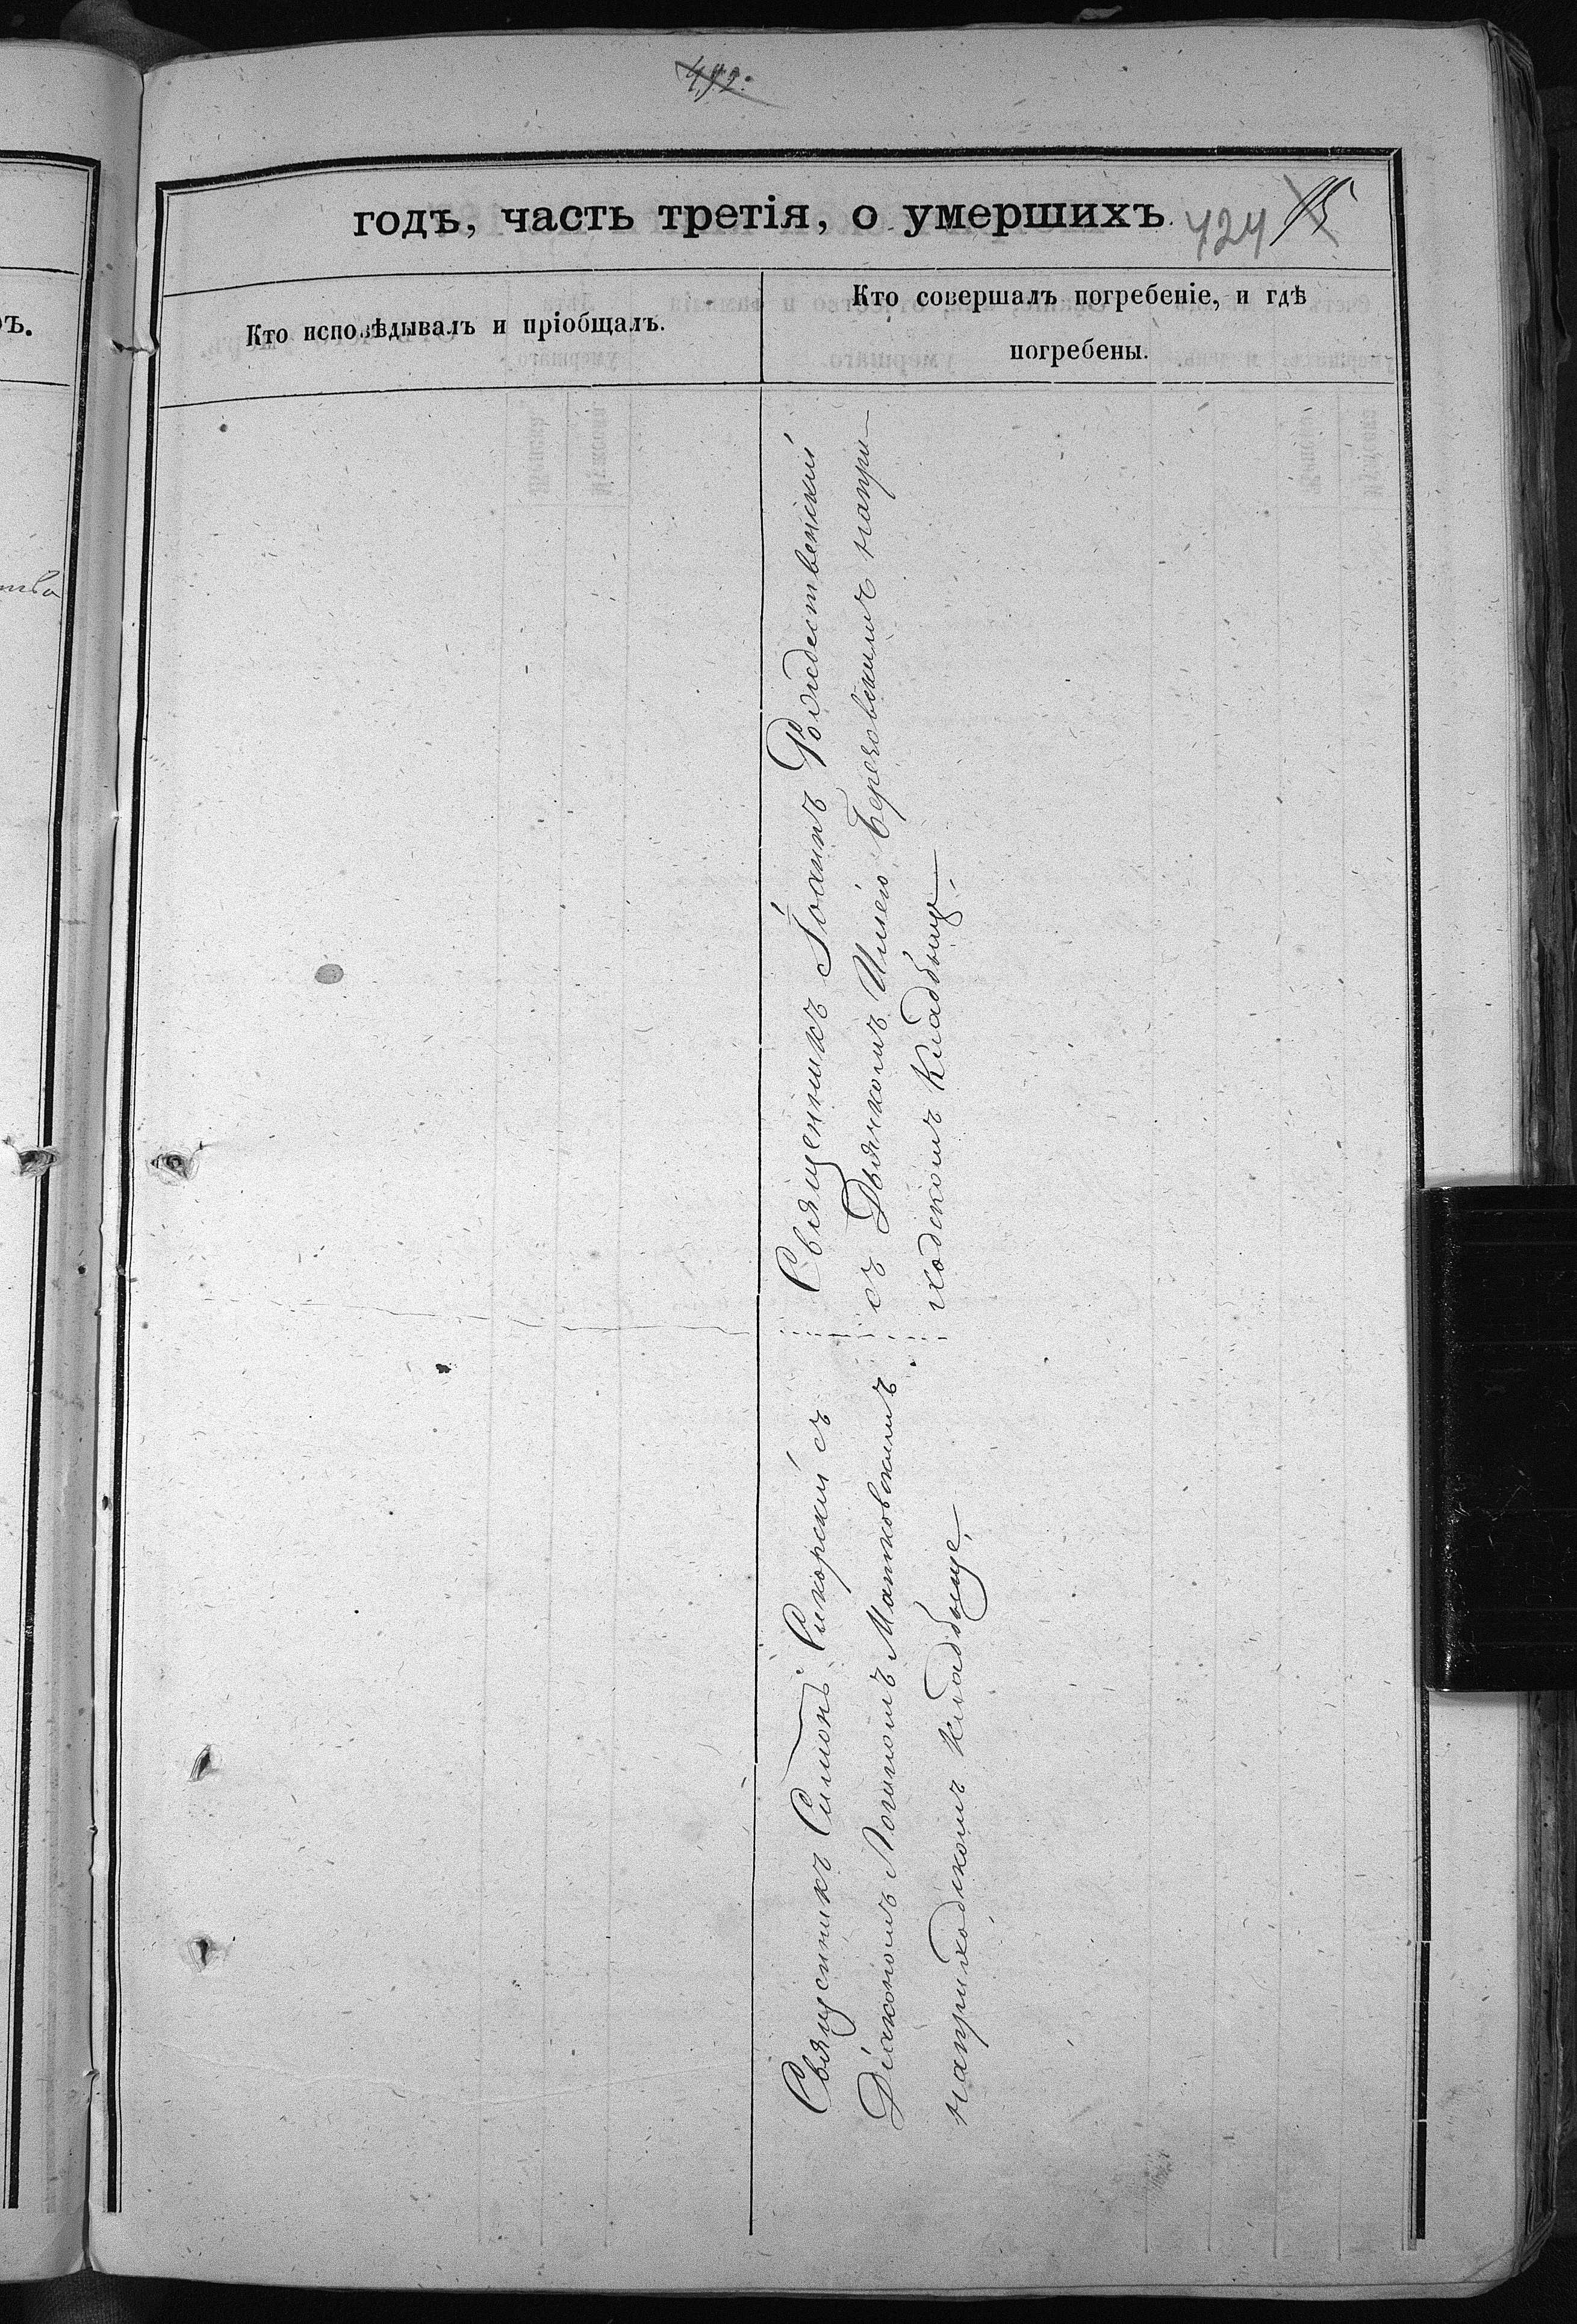 492.
годъ, часть третія, о умершихъ.
424
Кто исповѣдывалъ и пріобщалъ.
Кто совершалъ погребеніе, и гдѣ
погребены.
Священникъ Іоаннъ Рождественскій
съ Дьячкомъ Ильею Березовскимъ напри-
ходскомъ кладбищѣ
Священникъ Симонъ Сикорскій съ
Діакономъ Логиномъ Матковскимъ
наприходскомъ кладбище